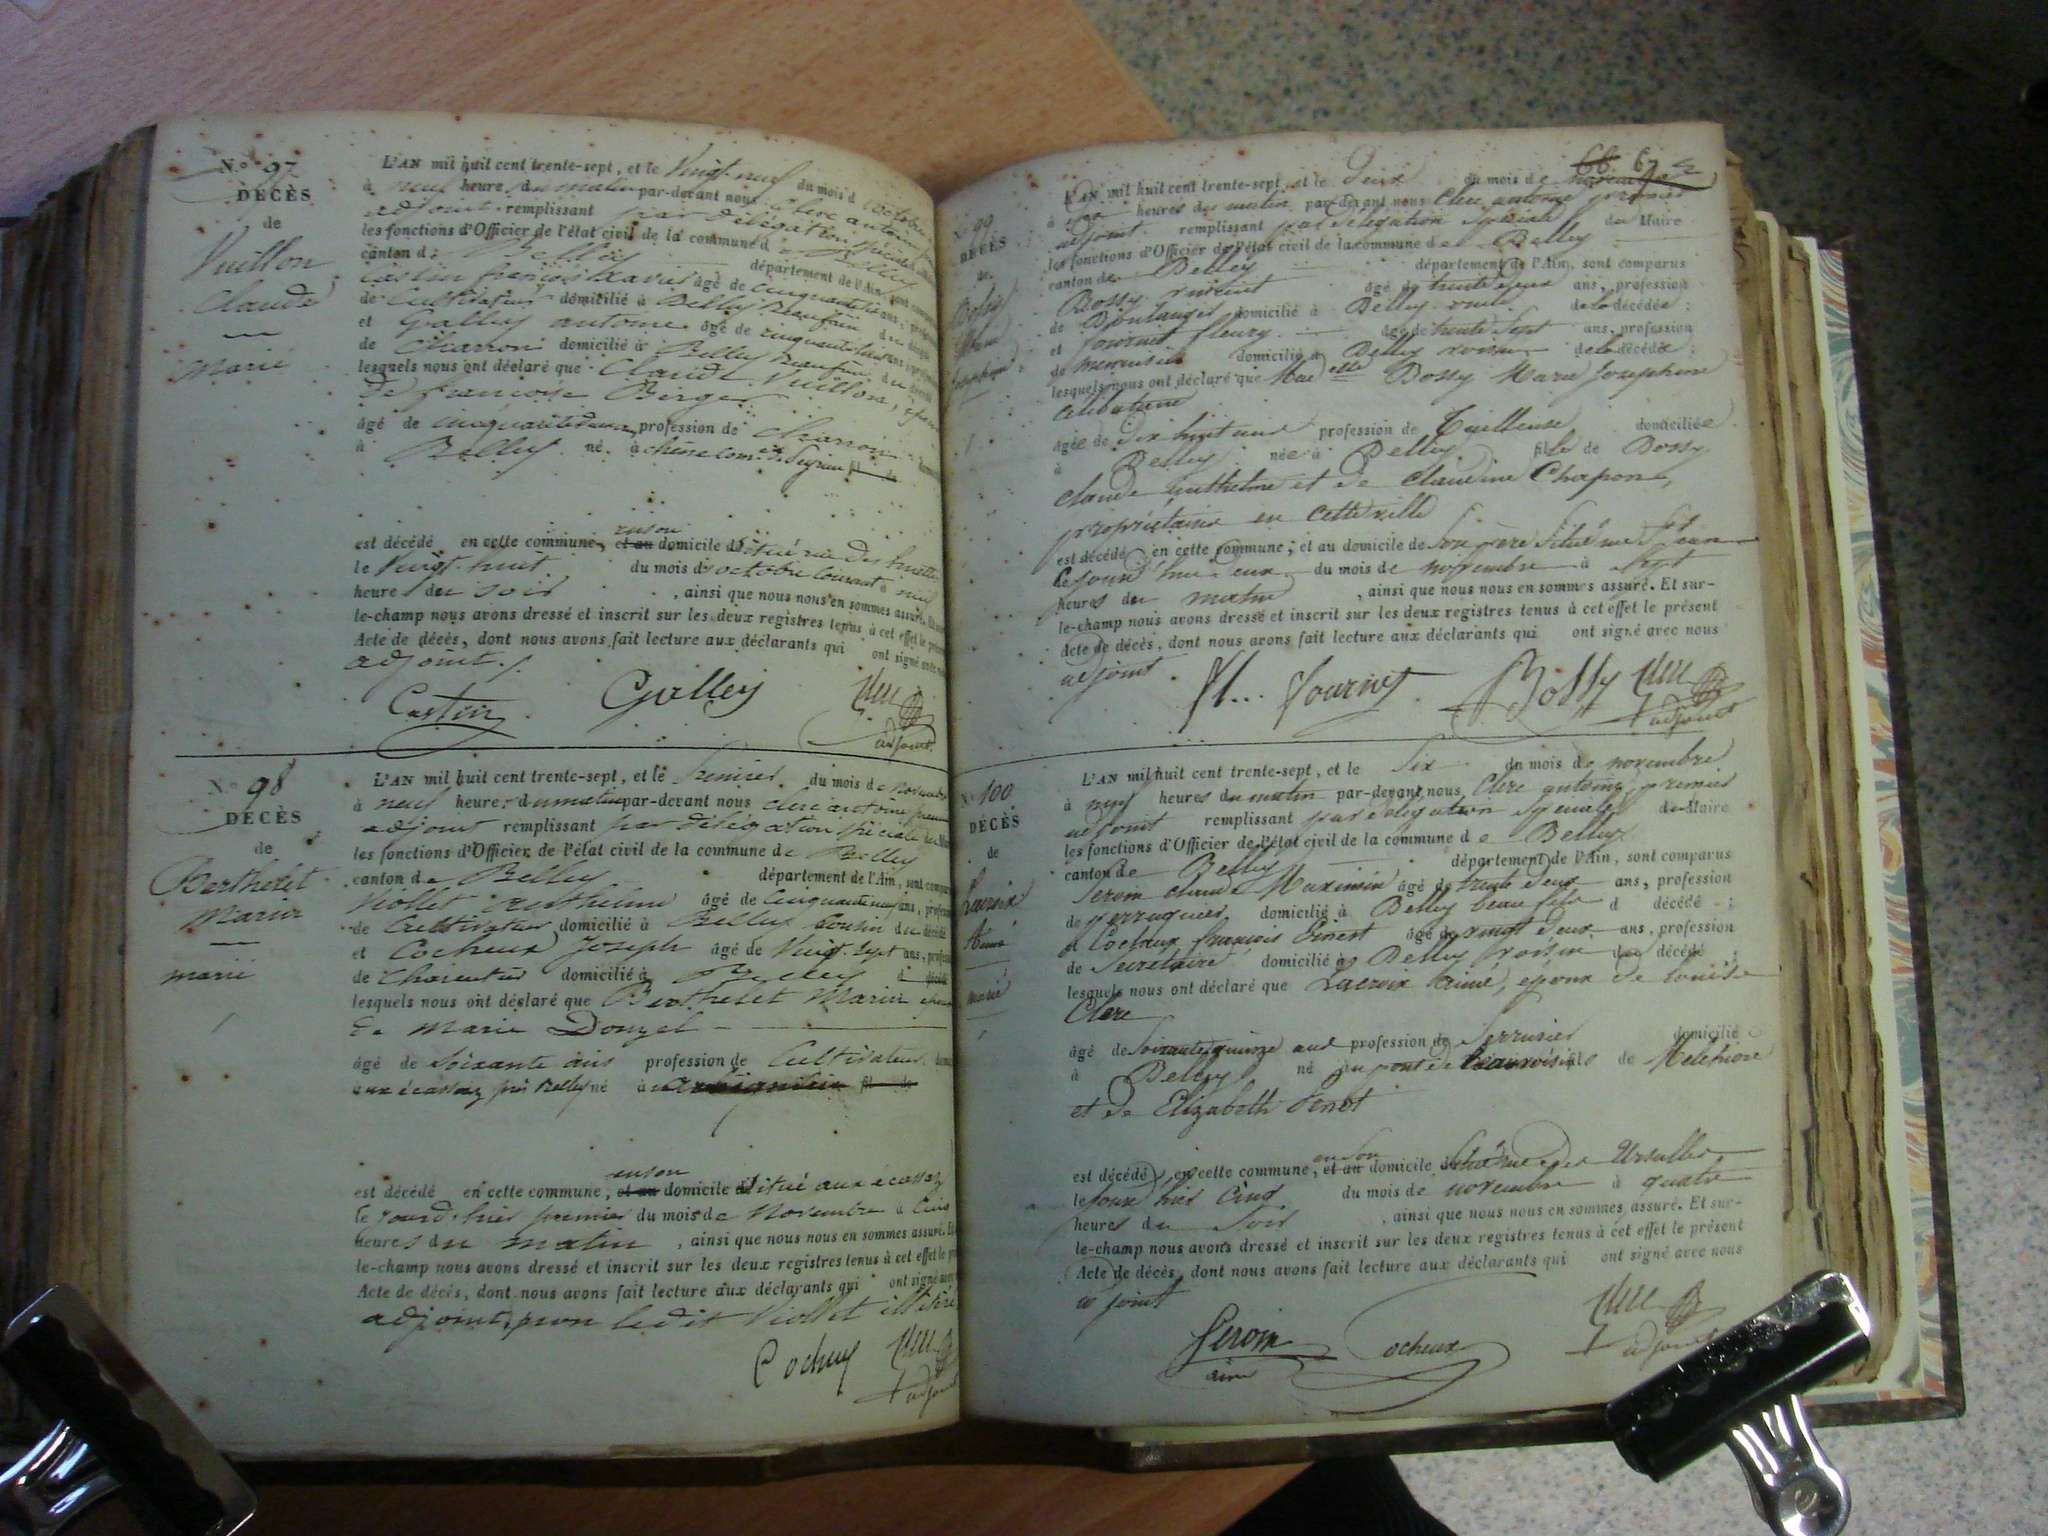 N° 97
DÉCÈS
de
Vuillon
Claude
Marié
L'AN mil huit cent trente-sept, et le Vingt-neuf du mois d'octobre
à neuf heures du matin par-devant nous Clerc antoine
adjoint remplissant par délégation spéciale
les fonctions d'Officier de l'état civil de la commune de Belley
canton de Belley département de l'Ain, sont comparus
Castin françois Xavier âgé de cinquante ans, profession
de Cultivateur domicilié à Belley Beaufrère du décédé
et Galley antoine âgé de cinquante ans, profession
de Charron domicilié à Belley beaufrère du décédé
lesquels nous ont déclaré que Claude Vuillon, époux
de françoise Berger
âgé de cinquante deux profession de charron
à Belley né à chêne com. de Peyrieu fil de
est décédé en cette commune, en son et au domicile situé rue des
le Vingt-huit du mois d'octobre courant à neuf
heures du soir, ainsi que nous nous en sommes assuré. Et sur-
le-champ nous avons dressé et inscrit sur les deux registres tenus à cet effet le présent
Acte de décès, dont nous avons fait lecture aux déclarants qui ont signé avec nous
adjoint.
Castin Galley Clerc
adjoint
N° 98
DÉCÈS
de
Berthelet
Marin
marié
L'AN mil huit cent trente-sept, et le Premier du mois de Novembre
à neuf heures du matin par-devant nous clerc antoine premier
adjoint remplissant par délégation spéciale du Maire
les fonctions d'Officier de l'état civil de la commune de Belley
canton de Belley département de l'Ain, sont comparus
Viollet anthelme âgé de Cinquante neuf ans, profession
de Cultivateur domicilié à Belley Cousin du décédé
et Cocheux Joseph âgé de Vingt-sept ans, profession
de Charpentier domicilié à Belley d décédé
lesquels nous ont déclaré que Berthelet Marin époux
de Marie Douzel
âgé de soixante ans profession de Cultivateur
aux écassaz près Belley né à fil de
est décédé en cette commune, en son et au domicile situé aux écassaz
le Jourd'hui premier du mois de Novembre à Cinq
heures du matin, ainsi que nous nous en sommes assuré. Et
le-champ nous avons dressé et inscrit sur les deux registres tenus à cet effet le
Acte de décès, dont nous avons fait lecture aux déclarants qui ont signé avec
adjoint, non ledit Viollet illitéré
Cocheux Clerc
adjoint
66 67
99
DÉCÈS
de
Bossy
Marie
Josephine
L'AN mil huit cent trente-sept, et le deux du mois de novembre
à heures du matin par-devant nous Clerc antoine premier
adjoint remplissant par délégation spéciale du Maire
les fonctions d'Officier de l'état civil de la commune de Belley
canton de Belley département de l'Ain, sont comparus
Bossy vincent âgé de trente deux ans, profession
de Boulanger domicilié à Belley de la décédée;
et fournet fleury âgé de trente sept ans, profession
de menuisier domicilié à Belley voisin de la décédée;
lesquels nous ont déclaré que Mademoiselle Bossy Marie Josephine
célibataire
âgée de dix huit ans profession de Tailleuse domiciliée
à Belley née à Belley fille de Bossy
claude anthelme et de claudine Chapon,
propriétaire en cette ville
est décédé en cette commune, et au domicile de son père situé rue St Jean
le Jourd'hui deux du mois de novembre à sept
heures du matin, ainsi que nous nous en sommes assuré. Et sur-
le-champ nous avons dressé et inscrit sur les deux registres tenus à cet effet le présent
Acte de décès, dont nous avons fait lecture aux déclarants qui ont signé avec nous
adjoint.
fl.. fournet Bossy Clerc
adjoint
N° 100
DÉCÈS
de
Lacroix
Aimé
marié
L'AN mil huit cent trente-sept, et le Six du mois de novembre
à neuf heures du matin par-devant nous Clerc antoine premier
adjoint remplissant par délégation spéciale du Maire
les fonctions d'Officier de l'état civil de la commune de Belley
canton de Belley département de l'Ain, sont comparus
Seroin claude Maximin âgé de trente deux ans, profession
de perruquier domicilié à Belley beau fils d décédé;
et Cocheux françois Ernest âgé de vingt deux ans, profession
de Secrétaire domicilié à Belley voisin du décédé;
lesquels nous ont déclaré que Lacroix aimé, époux de Louise
Clerc
âgé de soixante quinze ans profession de serrurier domicilié
à Belley né au pont de beauvoisin fils de Melchior
et de Elizabeth
est décédé en cette commune, en son et au domicile situé rue des Ursulles
le jour hier cinq du mois de novembre à quatre
heures du soir, ainsi que nous nous en sommes assuré. Et sur-
le-champ nous avons dressé et inscrit sur les deux registres tenus à cet effet le présent
Acte de décès, dont nous avons fait lecture aux déclarants qui ont signé avec nous
adjoint
Seroin Cocheux Clerc
aimé adjoint